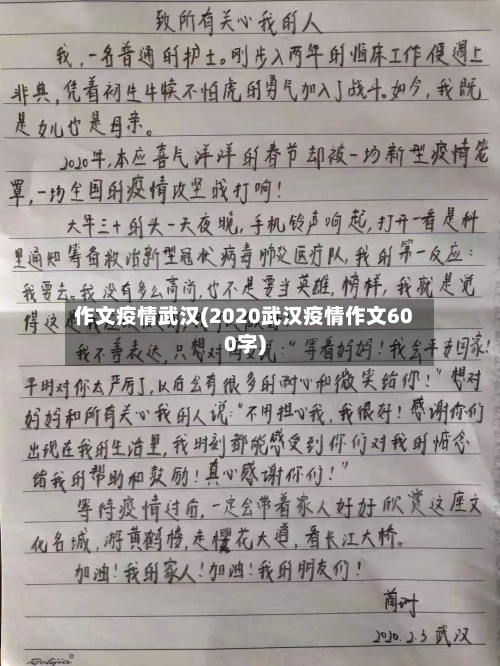 致所有关心我的人
我，一名普通的护士。刚步入两年的临床工作便遇上
非典，凭着初生牛犊不怕虎的勇气加入了战斗。如今，我既
是女儿也是母亲。
2020年，本应喜气洋洋的春节却被一场新型疫情笼
罩，一场全国的疫情攻坚战打响！
大年三十的头一天夜晚，手机铃声响起，打开一看是科
里通知筹备救治新型冠状病毒肺炎医疗队，我的第一反应：
我要去。我没有多么高尚，也不是要当英雄，榜样，我就是觉
得这是
作文疫情武汉(2020武汉疫情作文60
0字)
我不善表达，只想对女儿说："等着妈妈！我会平安回家！
平时对你太严厉了，以后会有很多的耐心和微笑给你！"想对
妈妈和所有关心我的人说："不用担心我，我很好！感谢你们
出现在我的生活里，我时刻都能感受到你们对我的惦念
给我的帮助和鼓励！真心感谢你们！"
等待疫情过后，一定会带着家人好好欣赏这座文
化名城，游黄鹤楼，走樱花大道，看长江大桥。
加油！我的家人！加油！我的朋友们！
2020.2.3 武汉